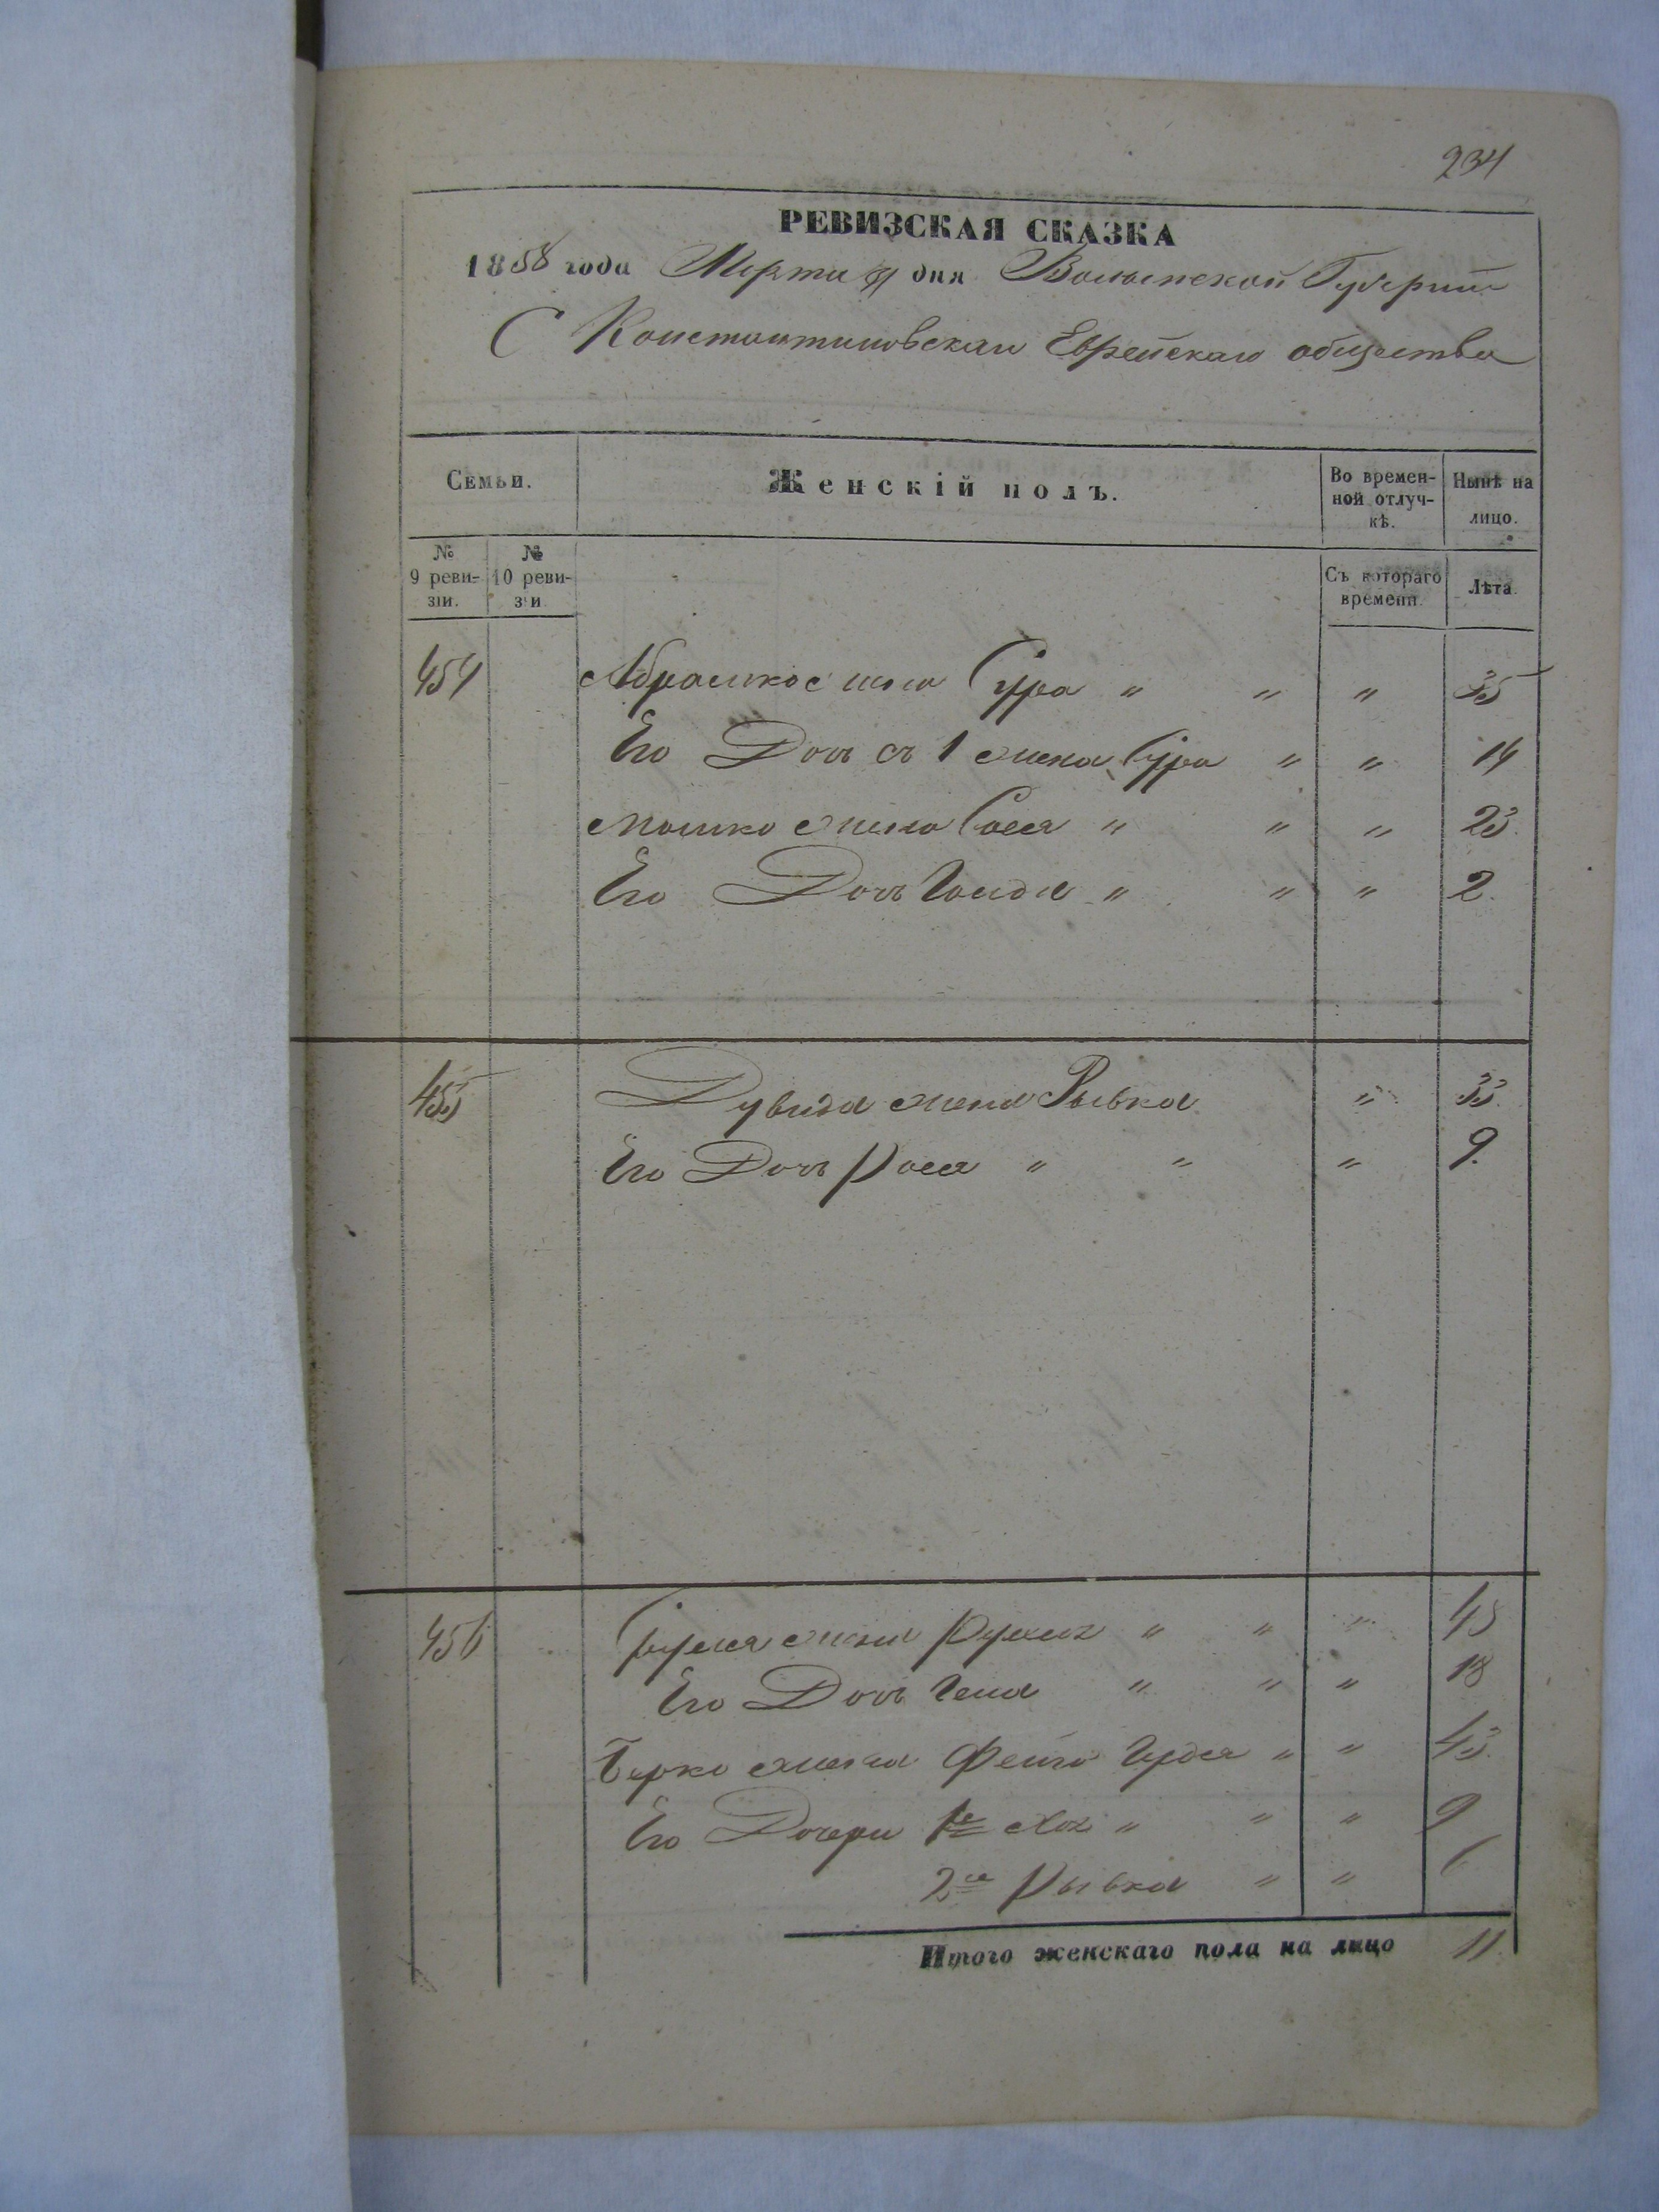 234
РЕВИЗСКАЯ СКАЗКА
1858 года Марта дня Волынской Губернии
С Константиновскаго Еврейскаго общества
Семьи. Женскій полъ. Во времен-ной отлуч-кѣ. Нынѣ на лицо.
№ 9 реви-зіи. № 10 реви-зіи Съ котораго времени. Лѣта.
454 Абрамко жена Сура " " " 35
Его Дочь съ 1 жены Сура " " 14
Мошко жена Сося " " " 23.
Его Дочь " " " 2.
455 Дувида жена Рывка " 33.
Его Дочь Рося " " " 9.
456 жена " " " 45
Его Дочь " " " 18
Берко жена Фейга " " 43.
Его Дочери 1е Хая " " " 9
2ая Рывка " " 6
Итого женскаго пола на лицо 11.